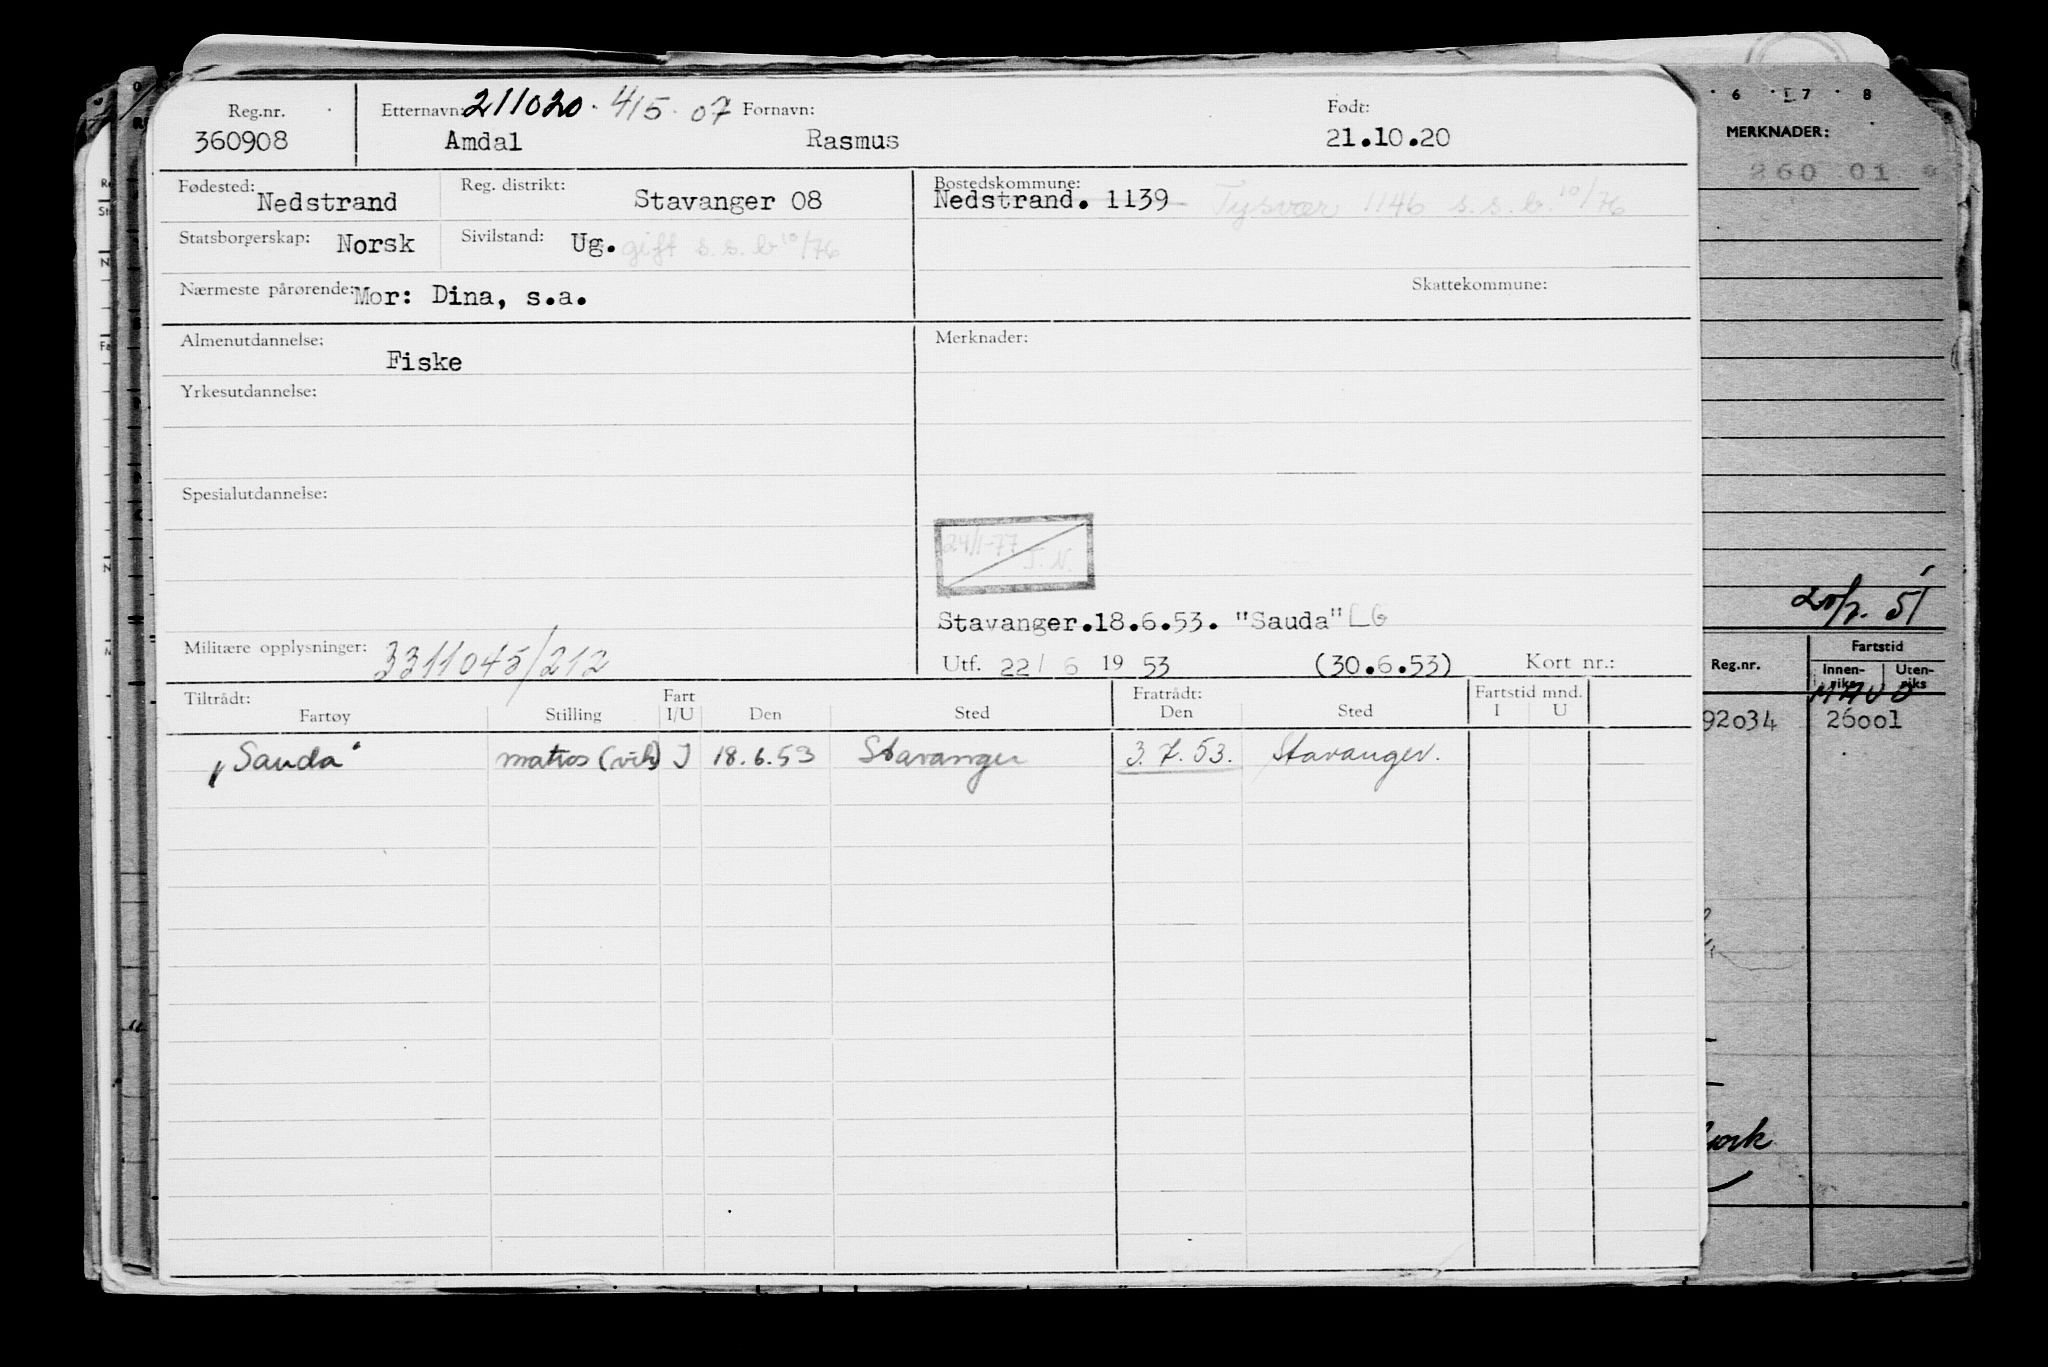 Reg.nr. Etternavn: 211020. 415. 07 Fornavn: Født:
360908 Amdal Rasmus 21.10.20
Fødested: Nedstrand Reg. distrikt: Stavanger 08 Bostedskommune: Nedstrand. 1139 Tysvær 1146 s.s.b. 10/76
Statsborgerskap: Norsk Sivilstand: Ug. gift s.s.b 10/76
Nærmeste pårørende: Mor: Dina, s.a. Skattekommune:
Almenutdannelse: Merknader:
Fiske
Yrkesutdannelse:
Spesialutdannelse:
24/1-77 T.N.
Stavanger.18.6.53. "Sauda" LG
Militære opplysninger: 3311045/212 Utf. 22/ 6 19 53 (30.6.53) Kort nr.:
Tiltrådt: Fart Fratrådt: Fartstid mnd.
Fartøy Stilling I/U Den Sted Den Sted I U
"Sauda" matros (vik) I 18.6.53 Stavanger 3.7.53. Stavanger.
6 7 8
MERKNADER:
260 01
51
Reg.nr. Fartstid
Innenriks Utenriks
92034 26001